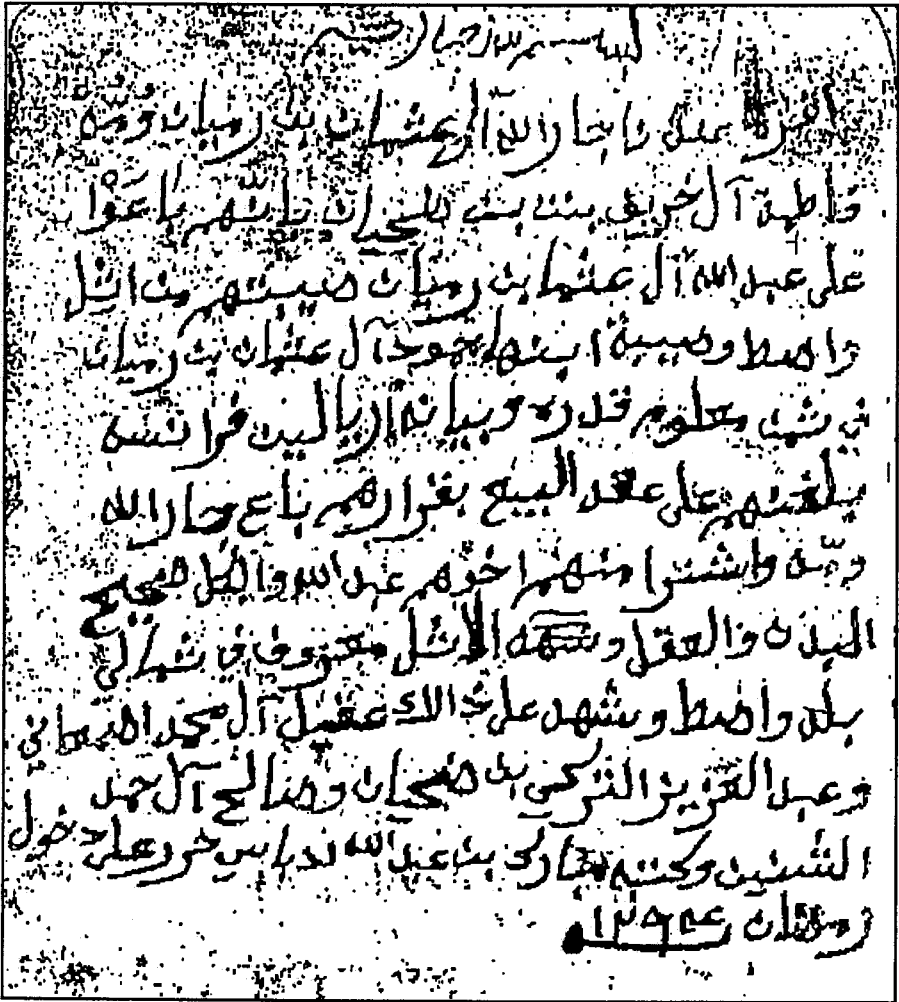 بسم الله الرحمن الرحيم
عندي جار الله آل عثمان بن رميان ومنه
فاطمة آل خريف بنت بنت ضحيان بانهم باعوا
على عبد الله آل عثمان بن رميان صيبتهم من اثل
واصط وصيبة ابنتها آل عثمان بن رميان
في ثمن معلوم قدره وبيانه اريالين فرانسه
بلغتهم على عقد البيع بقرارهم باع جار الله
ومنه واشترا منهم اخوهم عبد الله والكل صحيح
البدن والعقل وسهمه الاثل معروف في شمالي
بلد واصط وشهد على ذالك عقيل آل محمد
وعبد العزيز التركي بن ضحيان وصالح آل حمد
الشتيت وكتبه مبارك بن عبد الله حرر على دخول
رمضان